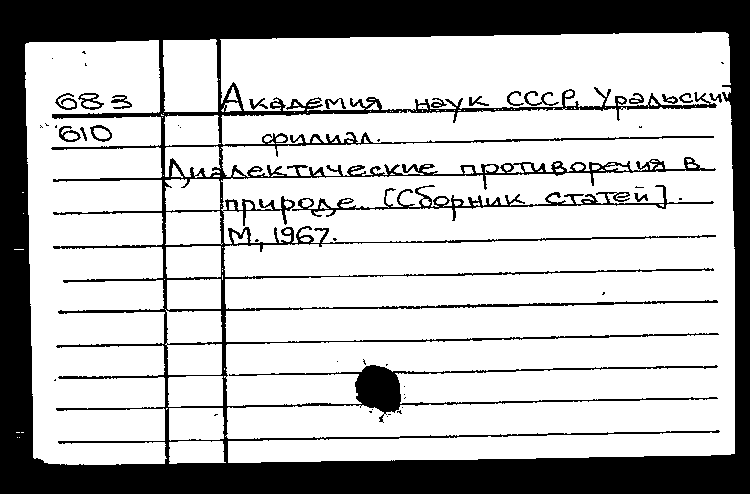 68 з Академия наук СССР, Уральский
610 филиал.
Диалектические противоречия в
природе. [Сборник статей].
М., 1967.